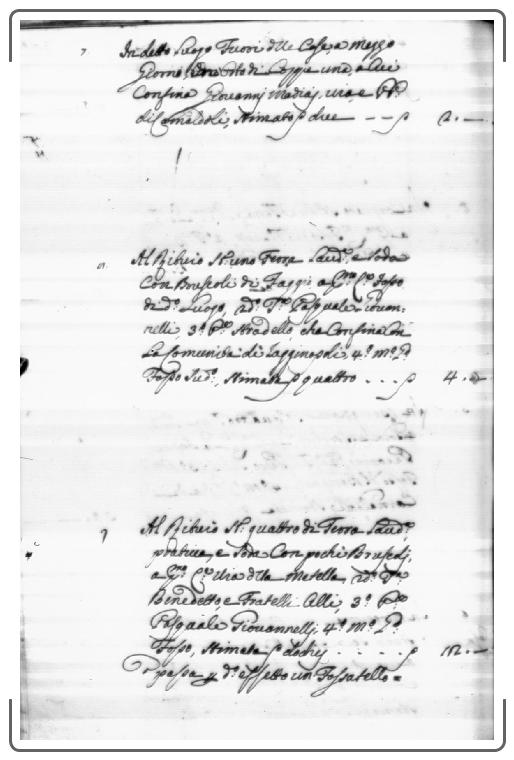 In detto Luogo Fuori dlle Case, a mezzo
Giorno, Orto di Coppe una, a cui
Confina Giovanni Madiaj, via, e PP.
di Camaldoli, Stimato p due - - p 2. -
Al Ribuio N: uno Terra Laud:, e Soda
Con Bruscoli di Faggio, a Pmo Cno Fosso
di do Luogo, 2do Pmo Pasquale Giovan:
nelli, 3o Pmo Stradello, che Confina Con
La Comunità di 4o Mo Po
Fosso Sudo, Stimata p quattro . . . p 4. -
Al Ribuio N: quattro di Terra Laud:
prativa, e Soda Con pochi Bruscoli,
a Pmo Cno via dlla Metella, 2do Pmo
Benedetto, e Fratelli Alli, 3o Pmo
Pasquale Giovannelli, 4o Mo Po
Fosso, Stimata p dodici . . . . . p 12. -
passa p do effetto un Fossatello =